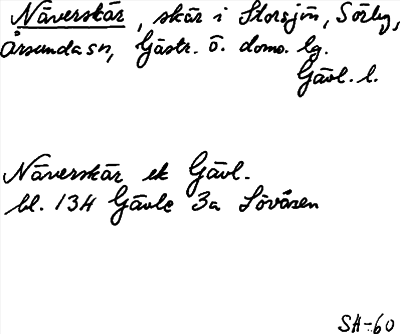 Näverskär, skär i Storsjön, Sörby,
Årsunda sn, Gästr. ö. doms. lg.
Gävl. l.
Näverskär ek Gävl.
bl. 13H Gävle 3a Lövåsen
SH-60